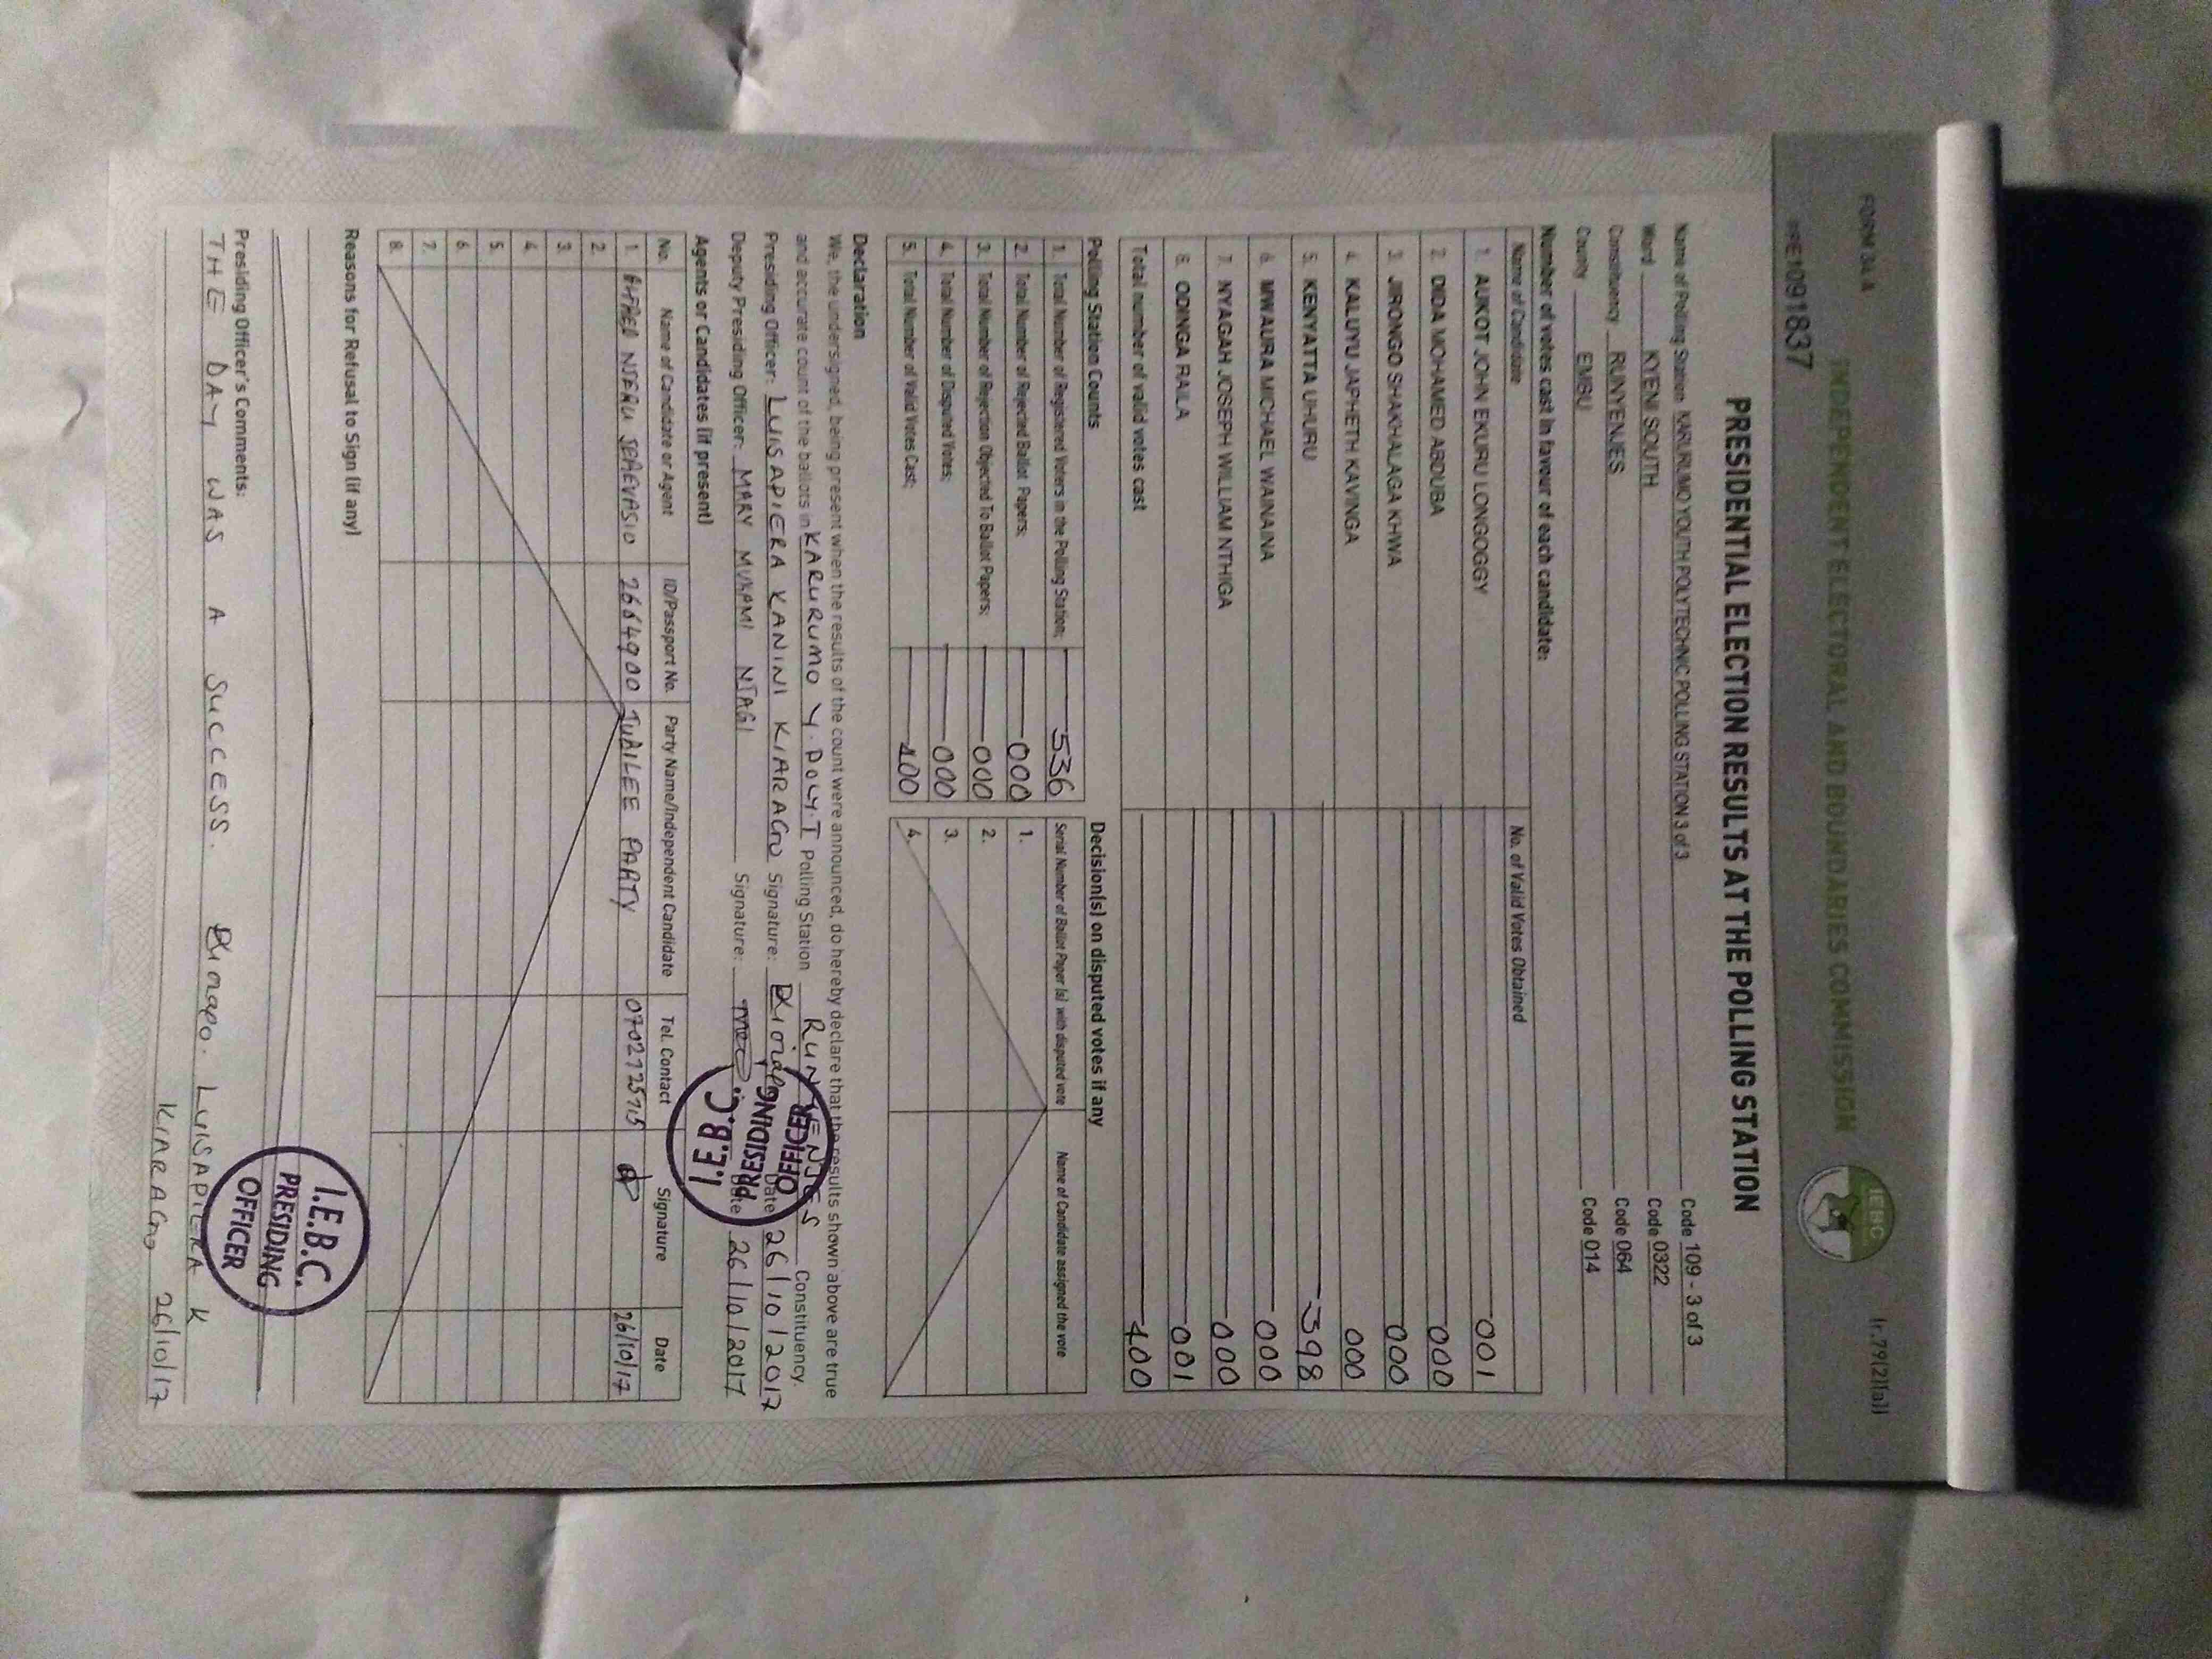 FORM 34 A
Ir.79(2)(a)]
INDEPENDENT ELECTORAL AND BOUNDARIES COMMISSION
IEBC
PRE1091837
PRESIDENTIAL ELECTION RESULTS AT THE POLLING STATION
Name of Polling Station KARURUMO YOUTH POLYTECHNIC POLLING STATION 3 of 3 Code 109 - 3 of 3
Ward KYENI SOUTH Code 0322
Constituency RUNYENJES Code 064
County EMBU Code 014
Number of votes cast in favour of each candidate:
Name of Candidate No. of Valid Votes Obtained
1. AUKOT JOHN EKURU LONGOGGY 001
2. DIDA MOHAMED ABDUBA 000
3. JIRONGO SHAKHALAGA KHWA 000
4. KALUYU JAPHETH KAVINGA 000
5. KENYATTA UHURU 398
6. MWAURA MICHAEL WAINAINA 000
7. NYAGAH JOSEPH WILLIAM NTHIGA 000
8. ODINGA RAILA 001
Total number of valid votes cast 400
Polling Station Counts
1. Total Number of Registered Voters in the Polling Station; 536
2. Total Number of Rejected Ballot Papers; 000
3. Total Number of Rejection Objected To Ballot Papers; 000
4. Total Number of Disputed Votes; 000
5. Total Number of Valid Votes Cast; 400
Decision(s) on disputed votes if any
Serial Number of Ballot Paper (s) with disputed vote Name of Candidate assigned the vote
1.
2.
3.
4.
Declaration
We, the undersigned, being present when the results of the count were announced, do hereby declare that the results shown above are true
and accurate count of the ballots in KARURUMO Y. POLY.T Polling Station RUNYENJES Constituency.
Presiding Officer: LUISAPIERA KANINI KIARAGO Signature: Date 26/10/2017
Deputy Presiding Officer: MARY MUKAMI NJAGI Signature: Date 26/10/2017
I.E.B.C.
PRESIDING
OFFICER
Agents or Candidates (if present)
No. Name of Candidate or Agent ID/Passport No. Party Name/Independent Candidate Tel. Contact Signature Date
1. NJERU 2664900 JUBILEE PARTY 0702725715 26/10/17
2.
3.
4.
5.
6.
7.
8.
Reasons for Refusal to Sign (if any)
Presiding Officer's Comments:
THE DAY WAS A SUCCESS. LUISAPIERA K
KIARAGO 26/10/17
I.E.B.C.
PRESIDING
OFFICER